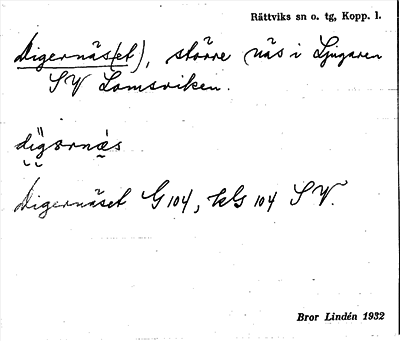 Rättviks sn o. tg, Kopp. l.
Digernäs(et), större näs i Ljugaren
SV Lomsviken.
Digernäset G 104, kG 104 SV.
Bror Lindén 1932